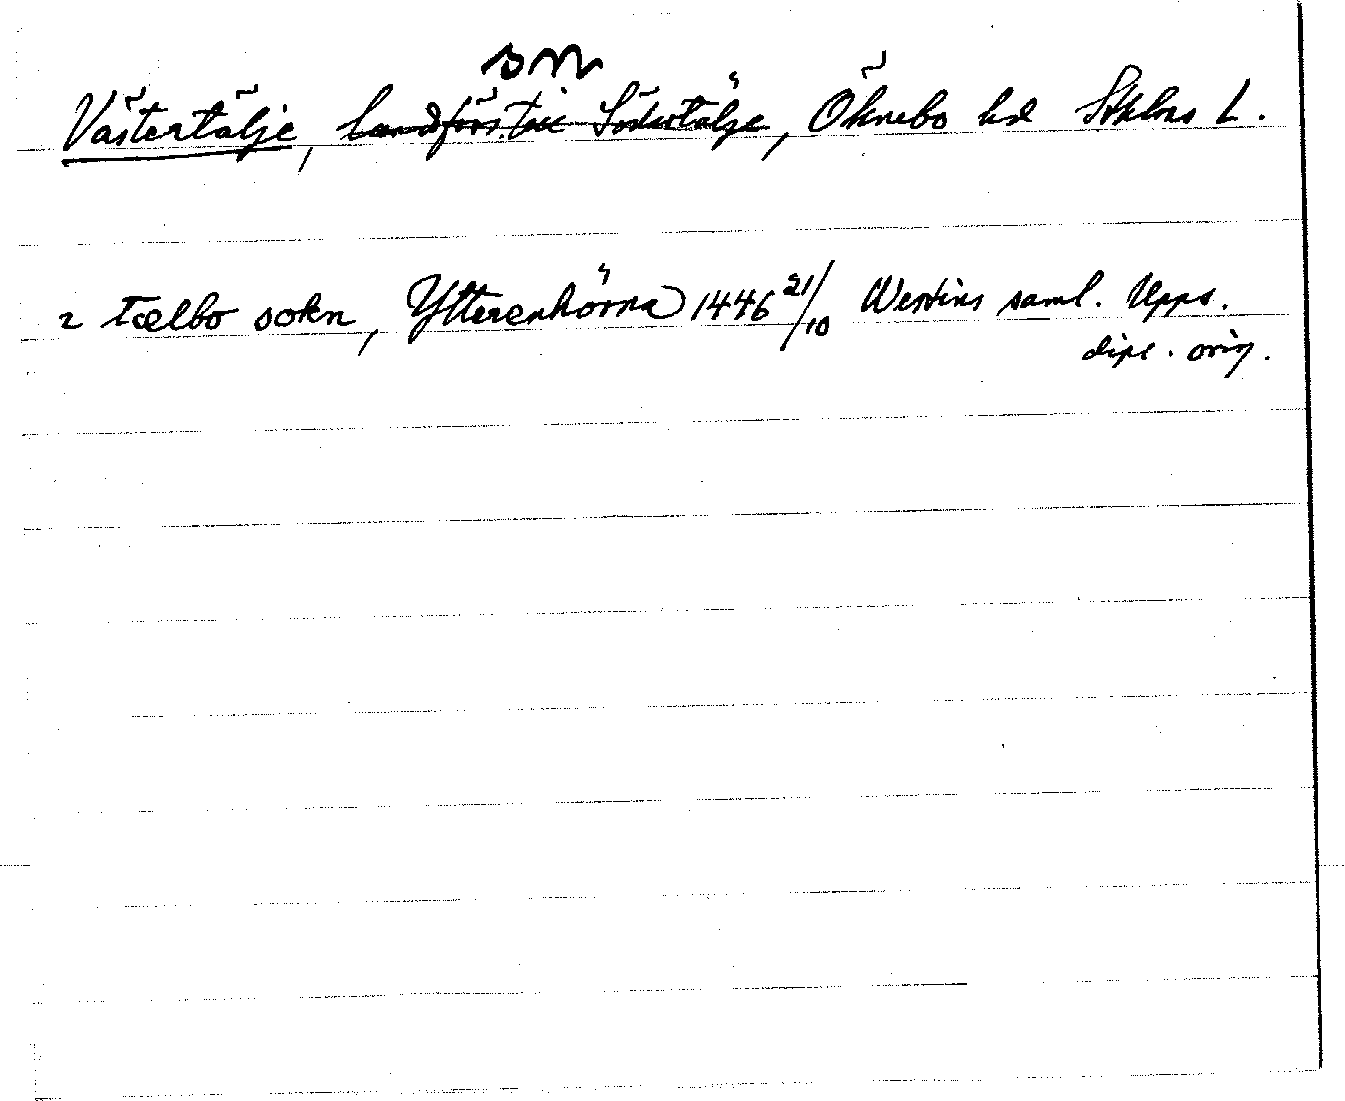 sn
Västertälje, landförs. till Södertälje, Öknebo hd Sthlms L.
2 tælbo sokn, Ytterenhörna 1446 21/10 Westins saml. Upps.
dipl. orig.